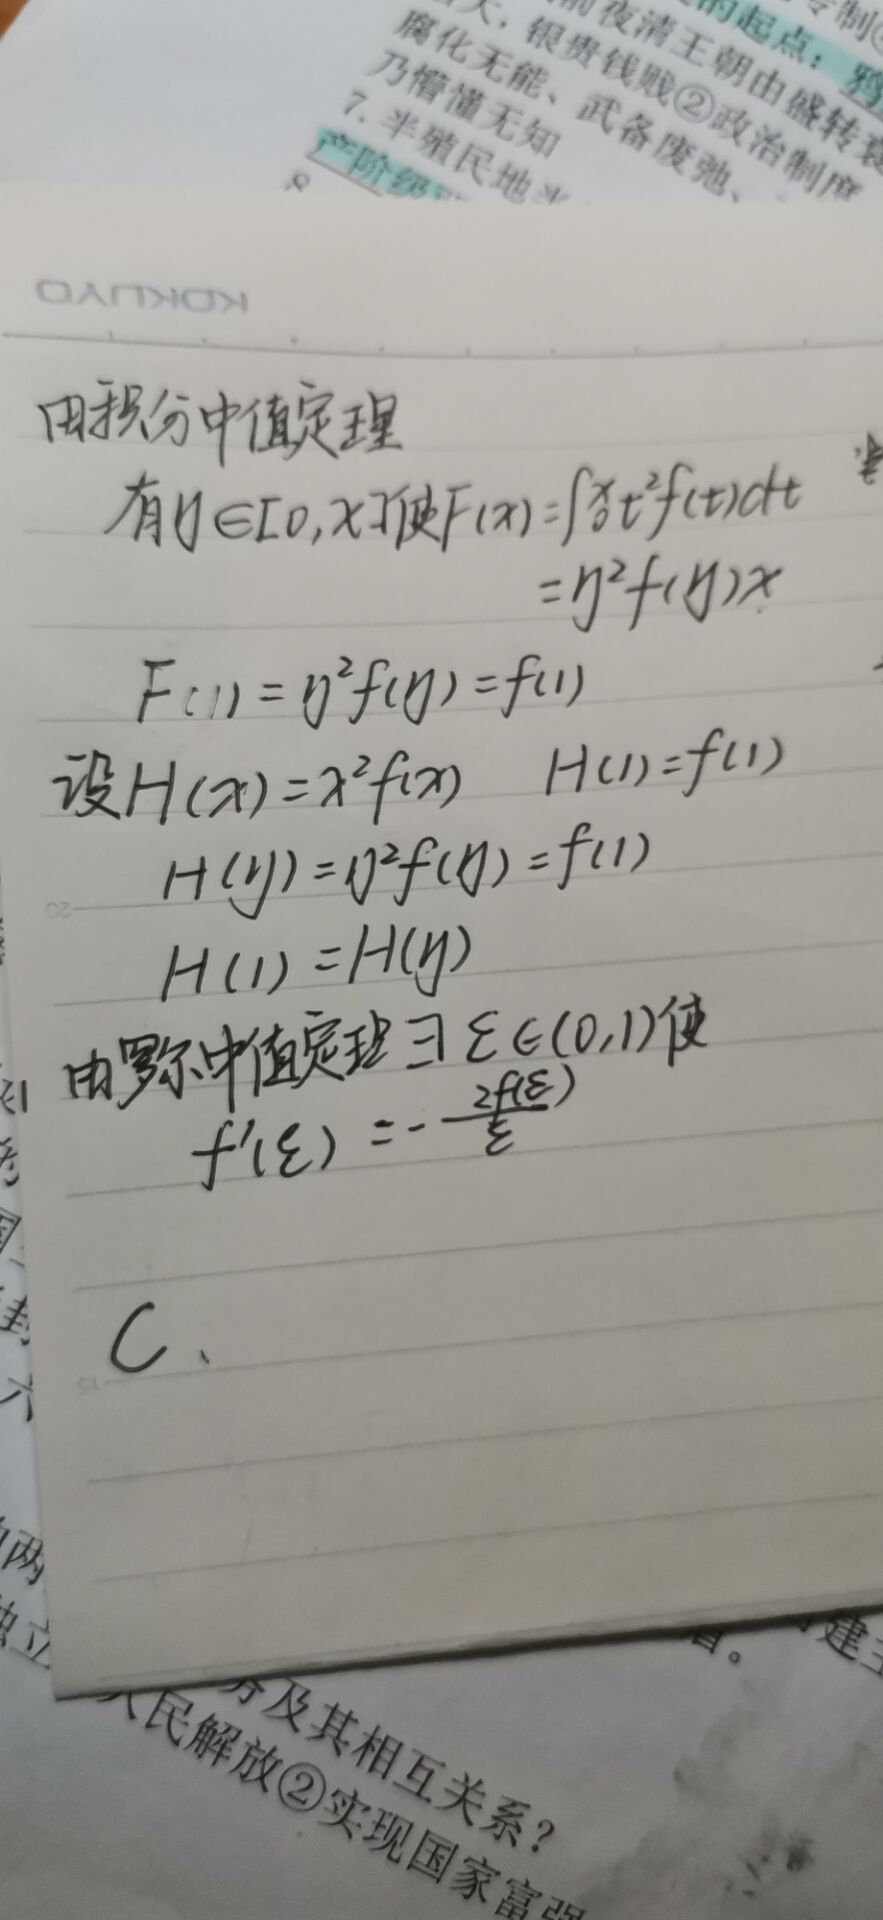 的起点：鸦
前夜清王朝由盛转衰
银贵钱贱②政治制度
腐化无能、武备废弛、
乃懵懂无知
7. 半殖民地
产阶级
KOKUYO
由积分中值定理
有η∈[0,x]使F(x)=∫₀ˣt²f(t)dt
=η²f(η)x
F(1)=η²f(η)=f(1)
设H(x)=x²f(x) H(1)=f(1)
H(η)=η²f(η)=f(1)
20
H(1)=H(η)
由罗尔中值定理∃ξ∈(0,1)使
f'(ξ)=-2f(ξ)/ξ
C、
15
六
两
独立
务及其相互关系？
人民解放②实现国家富强